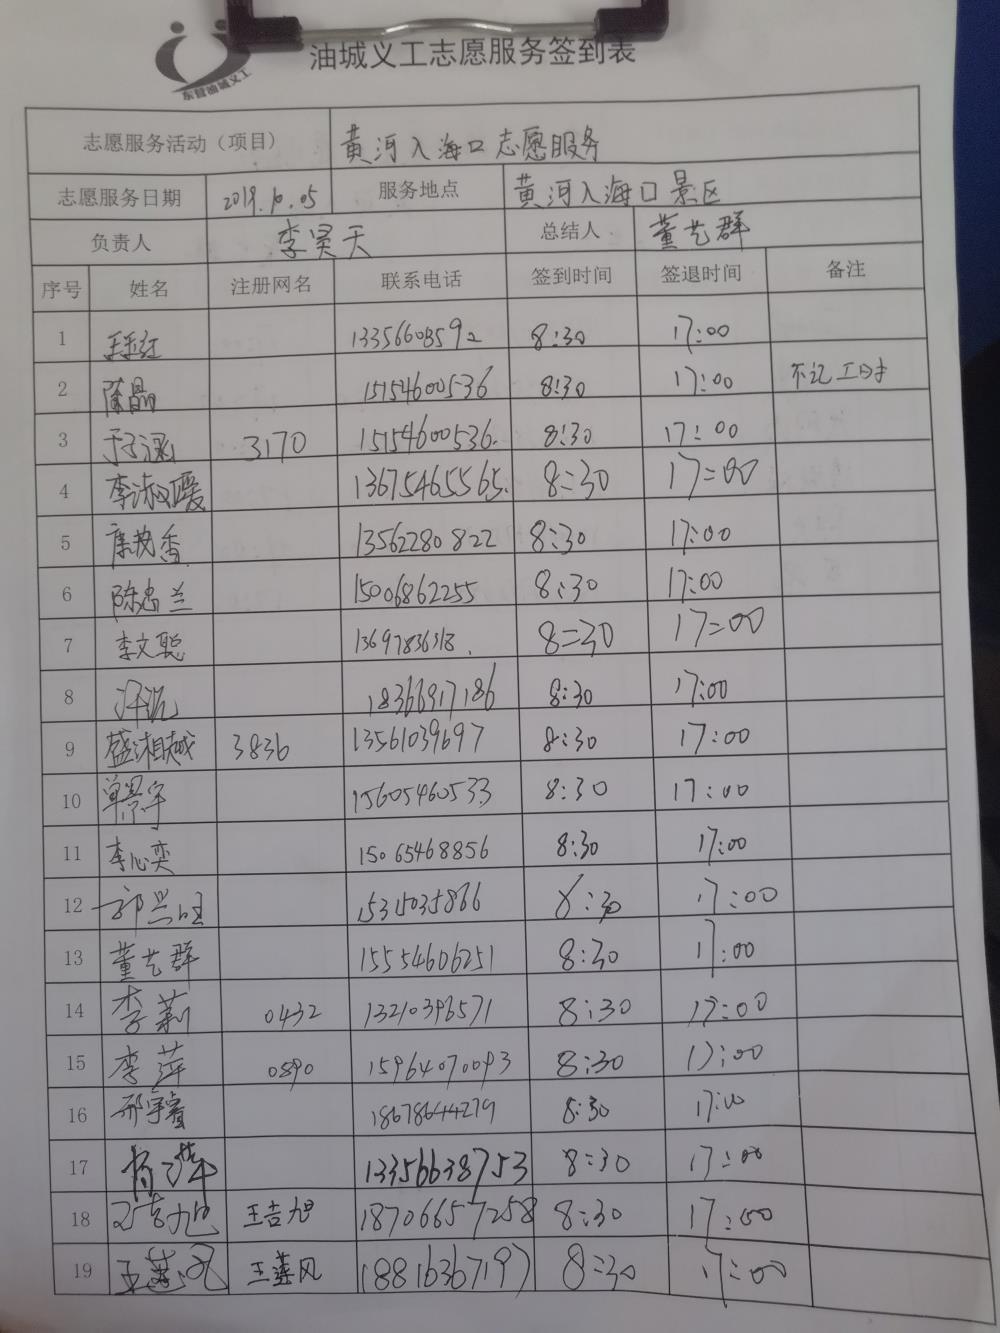 东营油城义工
油城义工志愿服务签到表
志愿服务活动（项目） 黄河入海口志愿服务
志愿服务日期 2019.10.05 服务地点 黄河入海口景区
负责人 李昊天 总结人 董艺群
序号 姓名 注册网名 联系电话 签到时间 签退时间 备注
1 8:30 17:00
2 陈晶 15154600536 8:30 17:00 不记工时
3 于子涵 3170 15154600536. 8:30 17:00
4 李淑媛 13675465565. 8:30 17:00
5 13562280822 8:30 17:00
6 陈忠兰 15006862255 8:30 17:00
7 李文聪 13697836318. 8:30 17:00
8 18366917186 8:30 17:00
9 盛湘越 3836 13561039697 8:30 17:00
10 单景宇 15605460533 8:30 17:00
11 李心奕 15065468856 8:30 17:00
12 郭兴旺 15315035866 8:30 17:00
13 董艺群 15554606251 8:30 17:00
14 李莉 0432 13210396571 8:30 17:00
15 李萍 0890 15964070093 8:30 17:00
16 邢宇睿 18678644279 8:30 17:00
17 肖萍 13356638753 8:30 17:00
18 王吉旭 王吉旭 18706657258 8:30 17:00
19 王莲风 王莲风 18816367197 8:30 17:00